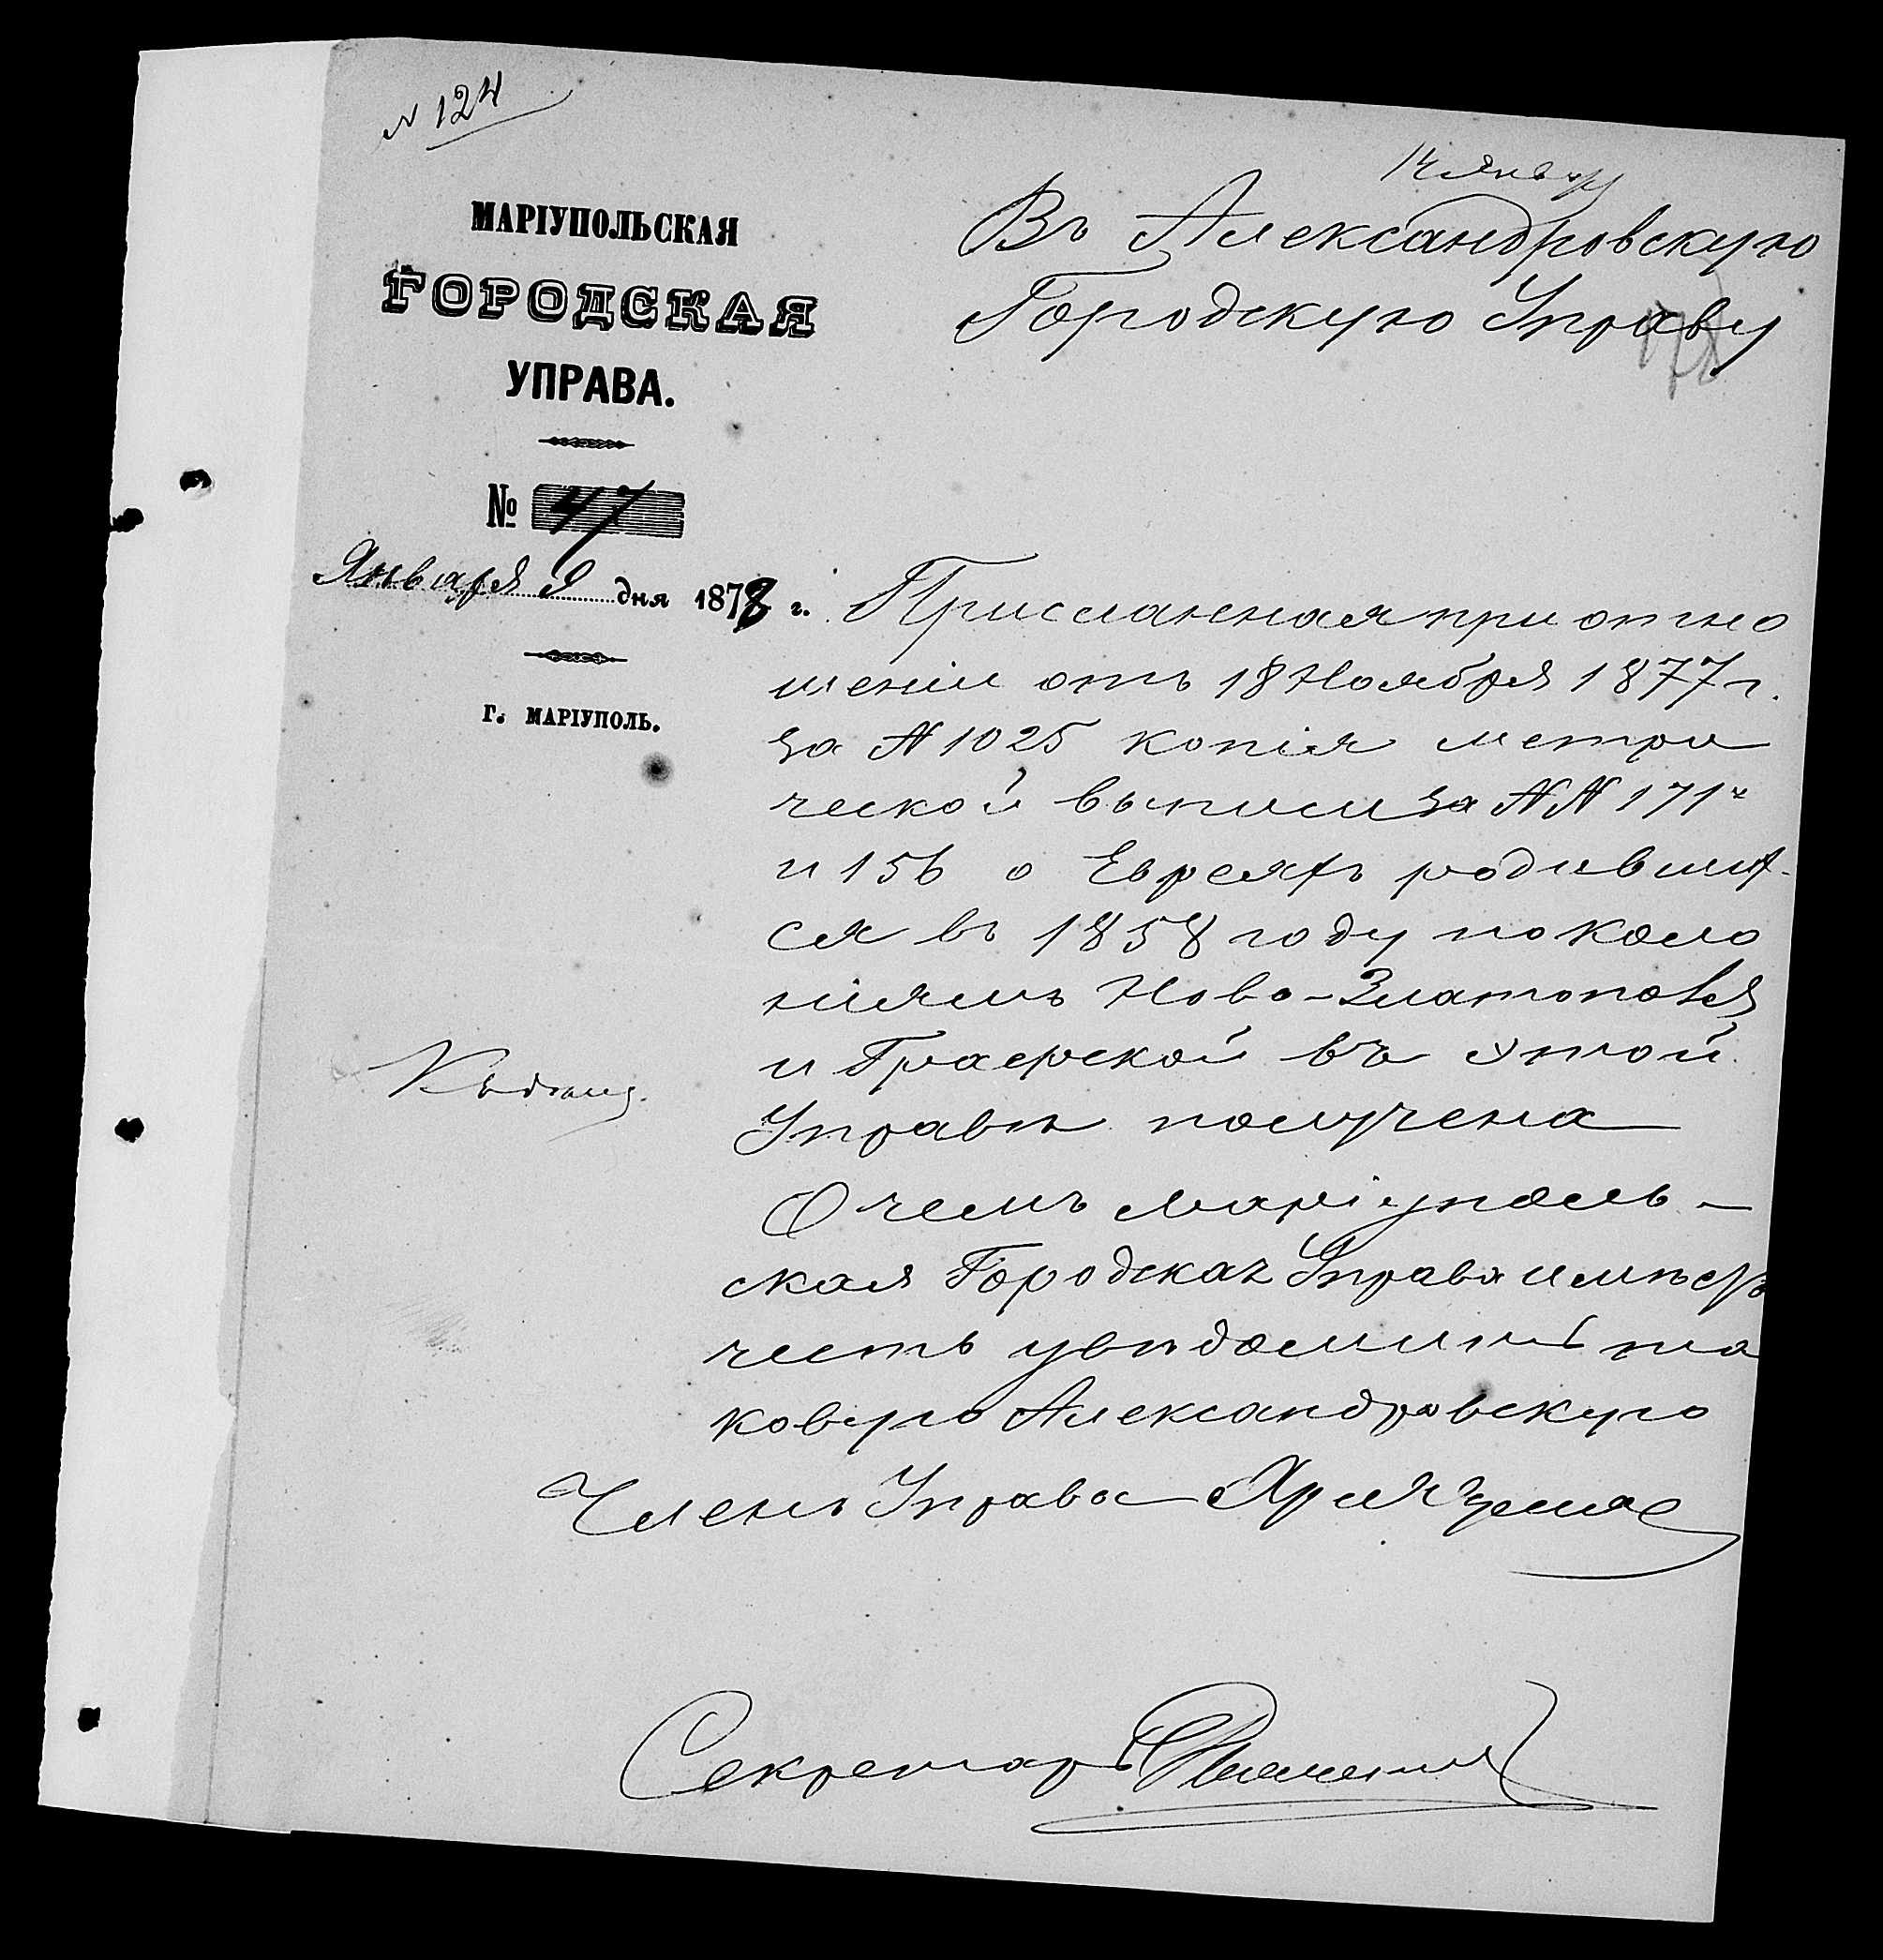 N 124
14 Января
МАРІУПОЛЬСКАЯ
ГОРОДСКАЯ
УПРАВА.
№ 47
Января 9 дня 1878 г.
Г. МАРІУПОЛЬ.
Въ Александровскую
Городскую Управу
Присланная при отно
шеніи отъ 18 Ноября 1877 г.
за N 1025 копія метри
ческой выписи за NN 171
и 156 о Евреяхъ родивших
ся въ 1858 году по коло
ніямъ Ново-Златополя
и Графской въ этой
Управѣ получена
О чемъ Маріуполь-
ская Городская Управа имѣетъ
честь увѣдомить та
ковую Александровскую
Къ дѣлу.
Членъ Управы
Секретарь